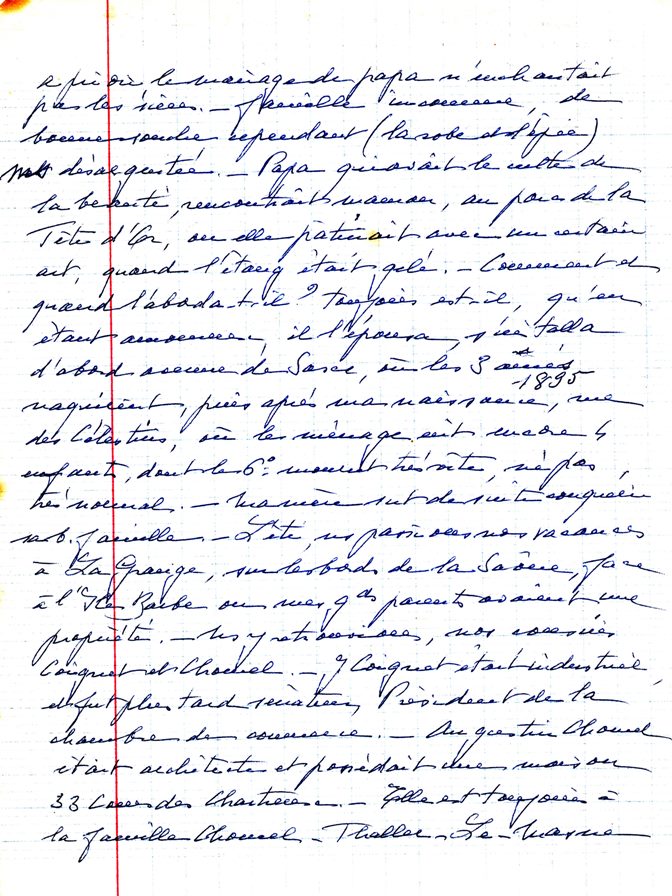 a priori le mariage de papa n'enchantait
pas les siens. - famille inconnue, de
bonne souche cependant (la robe et l'épée)
mais désargentée. - Papa qui avait le culte de
la beauté, rencontrait maman, au parc de la
Tête d'Or, où elle patinait avec un certain
art, quand l'étang était gelé. - Comment et
quand l'aborda-t-il ? toujours est-il, qu'en
étant amoureux, il l'épousa, s'installa
d'abord avenue de Saxe, où les 3 aînés
-1895
naquirent, puis après ma naissance, rue
des Célestins, où le ménage eut encore 4
enfants, dont le 6° mourut très vite, né pas
très normal. - Ma mère sut de suite conquérir
sa b. famille. - L'été, ns passions nos vacances
à La Grange, sur les bords de la Saône, face
à l'Ile Barbe où mes gds parents avaient une
propriété. - Ns y retrouvions, nos cousins
Coignet et Chomel. - J Coignet était industriel,
et fut plus tard sénateur, Président de la
chambre de commerce. - Augustin Chomel
était architecte et possédait une maison
33 Cours des Chartreux. - Elle est toujours à
la famille Chomel - Thaller - Le - Masne